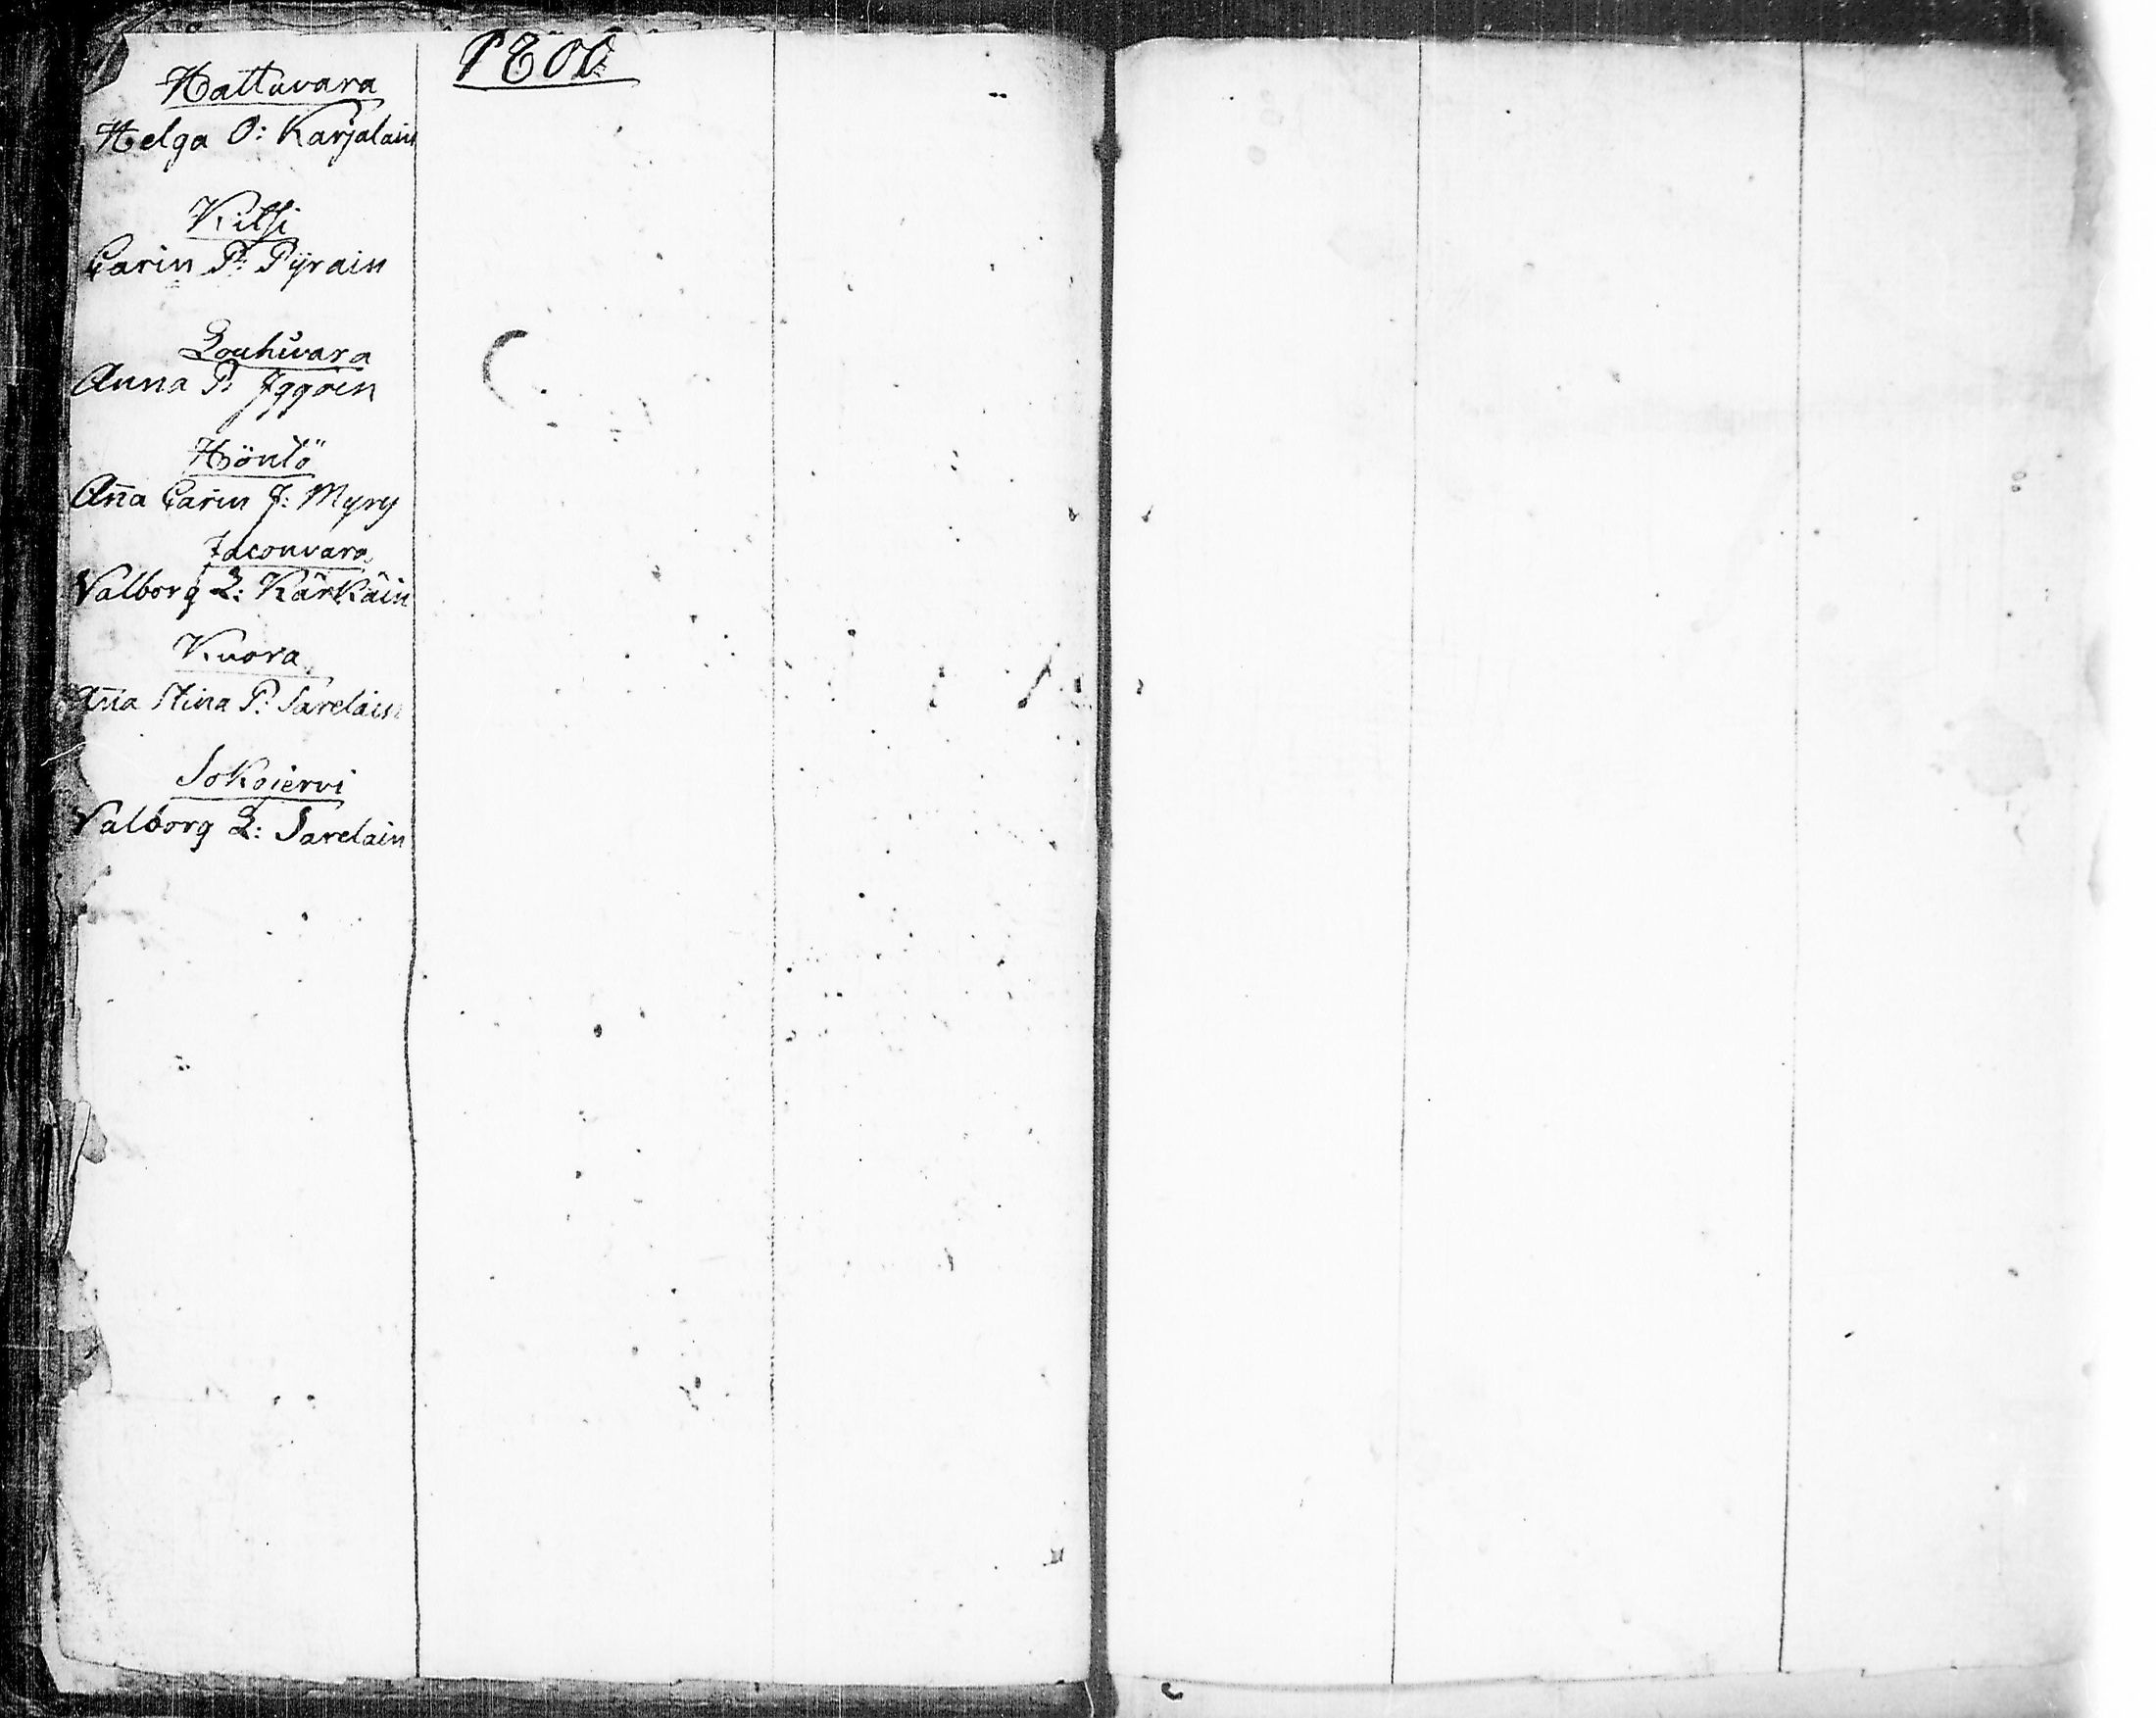 1800
Hattuvara
Helga O: Karjalain
Kitsi
Carin P: Pÿrain
Louhivara
Anna P: Iggöin
Höntö
Aña Carin J: Myry
Jaconvara
Valborg L: Kärkäin
Kuora
Aña Stina P: Sarelain
Sokojervi
Valborg L: Sarelain